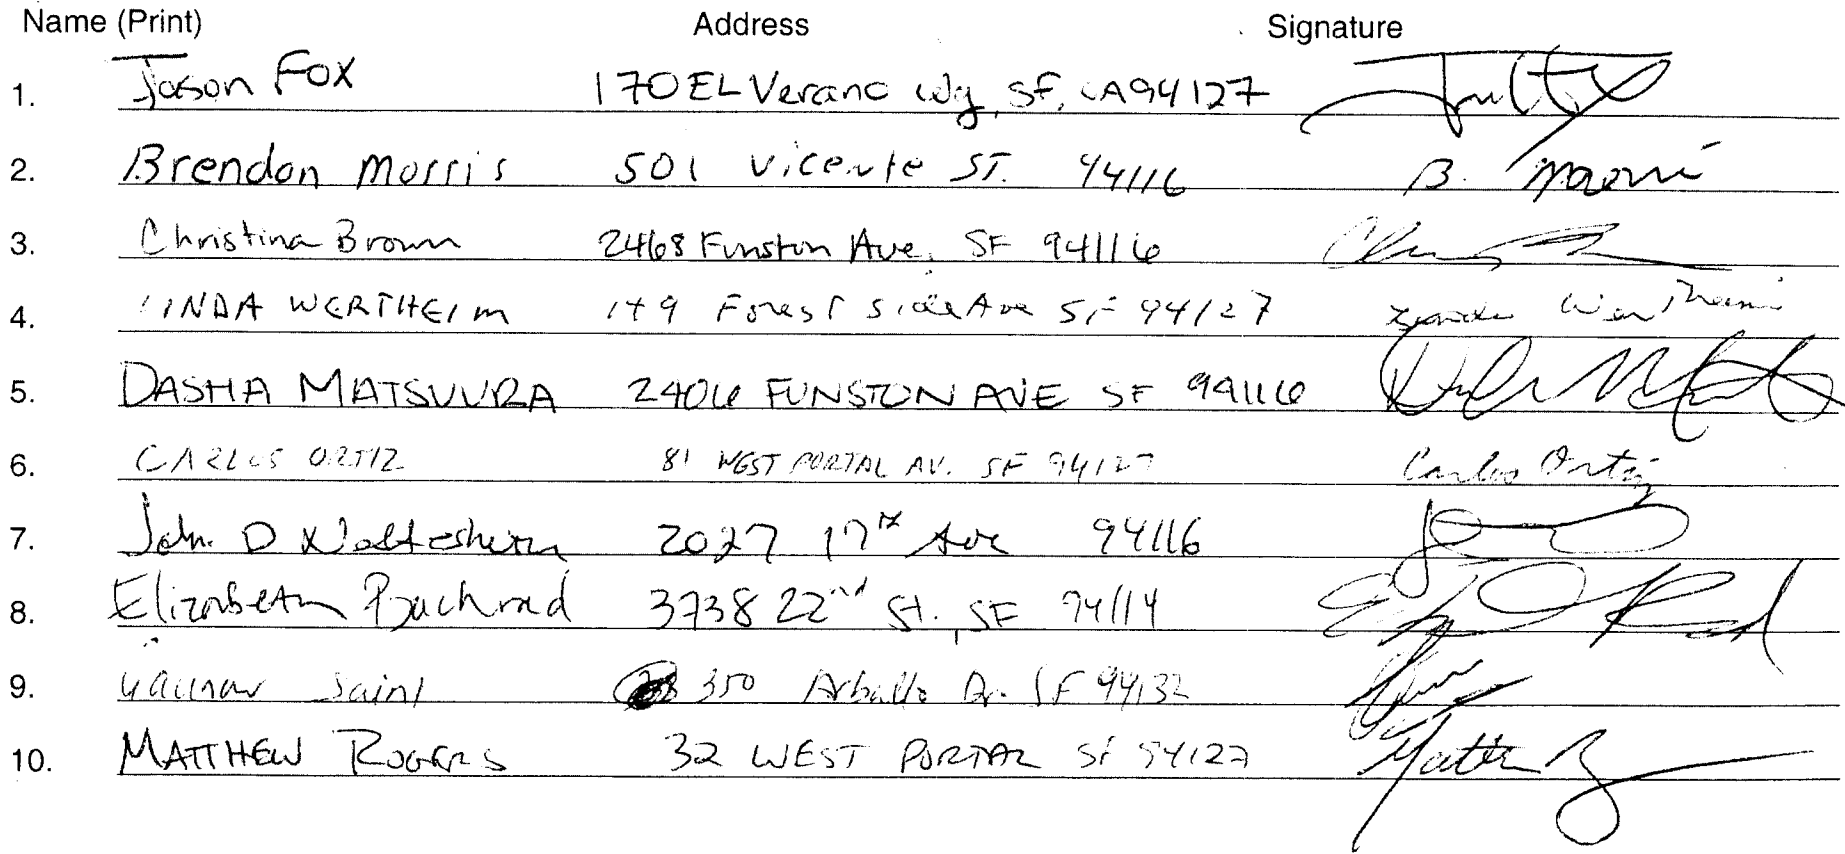 Name (Print) Address Signature
1. Jason Fox 170 EL Verano Wy, SF, CA 94127
2. Brendan Morris 501 Vicente ST. 94116 B. Morris
3. Christina Brown 2468 Funston Ave, SF 94116
4. LINDA WERTHEIM 149 Forest Side Ave SF 94127 Linda Wertheim
5. DASHA MATSUURA 2406 FUNSTON AVE SF 94116
6. CARLOS ORTIZ 81 WEST PORTAL AV. SF 94127 Carlos Ortiz
7. John D 2027 17th Ave 94116
8. Elizabeth 3738 22nd St., SF 94114
9. Saini 350 Arballo Dr. SF 94132
10. MATTHEW ROGERS 32 WEST PORTAL SF 94127